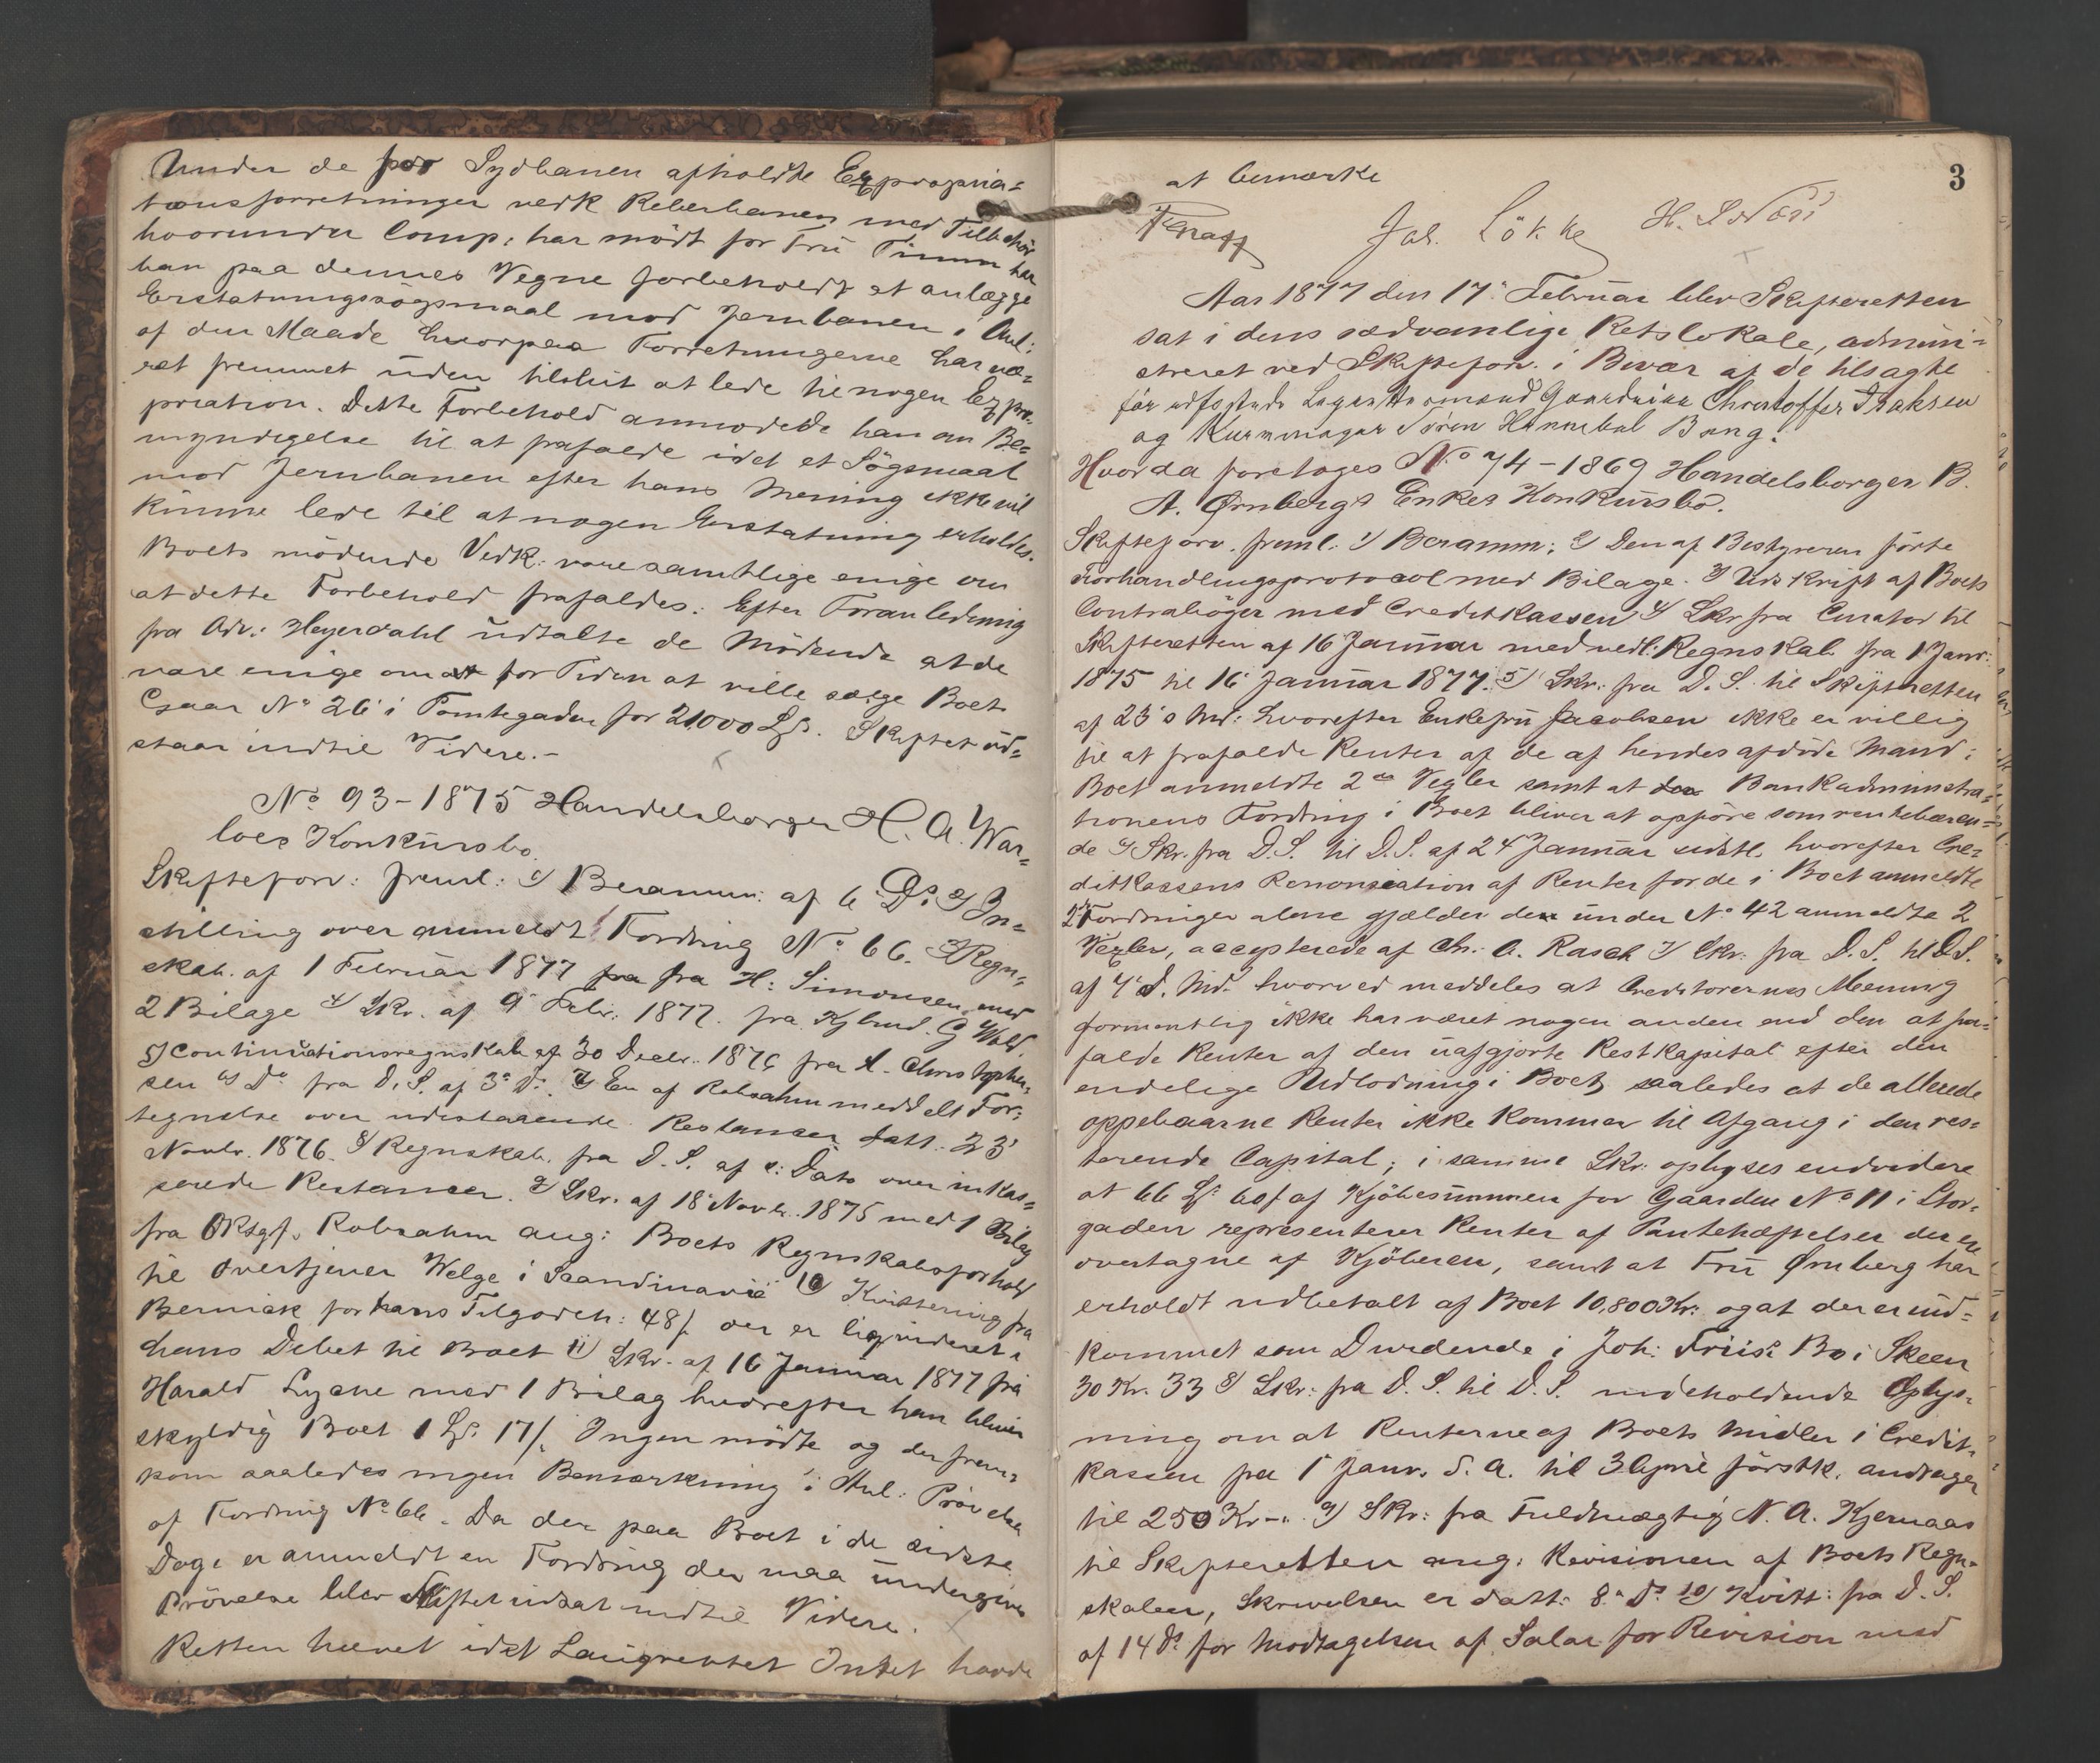 Under de for Sydbanen afholdte Expropria=
tionsforretninger vedk Reberbanen med Tilbehør
hvorunder Comp: har mødt for Fru Timm har
han paa dennes Vegne forbeholdt at anlægge
Erstatningssøgsmaal mod Jernbanen i Anl:
af den Maade hvorpaa Forretningerne har væ=
ret fremmet uden tilslut at lede til nogen Expro=
priation. Dette Forbehold anmodede han om Be=
myndigelse til at frafalde idet et Søgsmaal
mod Jernbanen efter hans Mening ikke vil
kunne lede til at nogen Erstatning erholdes.
Boets mødende Vedk: vare samtlige enige om
at dette Forbehold frafaldes: Efter Foranledning
fra Adv.: Heyerdahl udtalte de Mødende at de
vare enige om at for Tiden at ville sælge Boets
Gaar No 26 i Tomtegaden for 21000 Spd. Skiftet ud=
staar indtil Videre.-
No 93-1875 Handelsborger H. A. War=
loes Konkursbo.
Skifteforv: freml: 1) Beramm: af 6 Ds 2) In=
stilling over anmeldt Fordring No 66. 3) Regn=
skab. af 1 Februar 1877 fra fra H: Simonsen med
2 Bilage 4) Skr. af 9 Febr: 1877. fra Kjbmd. G Wold.
5) Continuationsregnskab af 30 Decbr. 1876 fra A. Christophe:
sen 6) Do fra D. S. af 3 Ds 7) En af Robsahm meddelt For:
tegnelse over udestaaende Restancer datt. 23
Novbr. 1876. 8) Regnskab. fra D. S. af s: Dato over inkas=
serede Restancer. 9) Skr. af 18 Novbr. 1875 med 1 Bilag
fra ORsgf. Robsahm ang: Boets Regnskabsforhold
til Overtjener Welge i Scandinavie 10) Kvittering fra
Bernick for hans Tilgodeh: 48 s der er liqvideret i
hans Debet til Boet 11) Skr. af 16 Januar 1877 fra
Harald Lyche med 1 Bilag hvorefter han bliver
skyldig Boet 1 Spd. 17 s. Ingen mødte og der frem=
kom saaledes ingen Bemærkning i Anl: Prøvelsen
af Fordring No 66. Da der paa Boet i de sidste
Dage er anmeldt en Fordring der maa undergives
Prøvelse blev Skiftet udsat indtil Videre.
Retten hævet idet Laugrettet Intet havde
3
at bemærke
Joh. Løkke
Aar 1877 den 17 Februar blev Skifteretten
sat i dens sædvanlige Retslokale, admini=
streret ved Skifteforv. i Bivær af de tilsagte
før edfæstede Laugrettesmænd Gaardeier Christoffer Isaksen
og Kurvmager Søren Hannibal Bang.
Hvor da foretoges No 74-1869 Handelsborger B.
A. Ørnbergs Enkes Konkursbo.
Skifteforv. freml: 1) Beramm: 2) Den af Bestyreren førte
Forhandlingsprotocol med Bilage. 3) Udskrift af Boets
Contrabøger med Creditkassen 4) Skr fra Curator til
Skifteretten af 16 Januar med vedl: Regnskab fra 1 Janr:
1875 til 16 Januar 1877. 5) Skr: fra D. S. til Skifteretten
af 23 s Md: hvorefter Enkefru Jacobsen ikke er villig
til at frafalde Renter af de af hendes afdøde Mand i
Boet anmeldte 2de Vexler samt at den Bankadministra=
tionens Fordring i Boet bliver at opføre som rentebæren=
de 6) Skr. fra D. S. til D. S. af 24 Januar sidstl. hvorefter Cre=
ditkassens Renonciation af Renter for de i Boet anmeldte
2de Fordringer alene gjælder den under No 42 anmeldte 2
Vexler, accepterede af Chr. A. Rasch 7) Skr: fra D. S. til D. S.
af 7 d. Md. hvorved meddeles at Creditorernes Mening
formentlig ikke har været nogen anden end den at fra=
falde Renter af den uafgjorte Restkapital efter den
endelige Udlodning i Boet, saaledes at de allerede
oppebaarne Renter ikke kommer til Afgang i den res=
terende Capital; i samme Skr: oplyses endvidere
at 66 Spd. 60 s af Kjøbesummen for Gaarden No 11 i Stor=
gaden representerer Renter af Pantehæftelser der ere
overtagne af Kjøberen, samt at Fru Ørnberg har
erholdt udbetalt af Boet 10,800 Kr: og at der er ind=
kommet som Dividende i Joh: Friis's Bo i Skeen
30 Kr. 33 8) Skr: fra D. S. til D. S. indeholdende Oplys=
ning om at Renterne af Boets Midler i Credit=
kassen fra 1 Janr. d. A. til 3 April førstk. andrager
til 250 Kr -". 9) Skr: fra Fuldmægtig N. A. Kjernaas
til Skifteretten ang: Revisionen af Boets Regn=
skaber, Skrivelsen er datt: 8 Ds 10) Kvitt: fra D. S.
af 14 Ds for Modtagelsen af Salar for Revision med